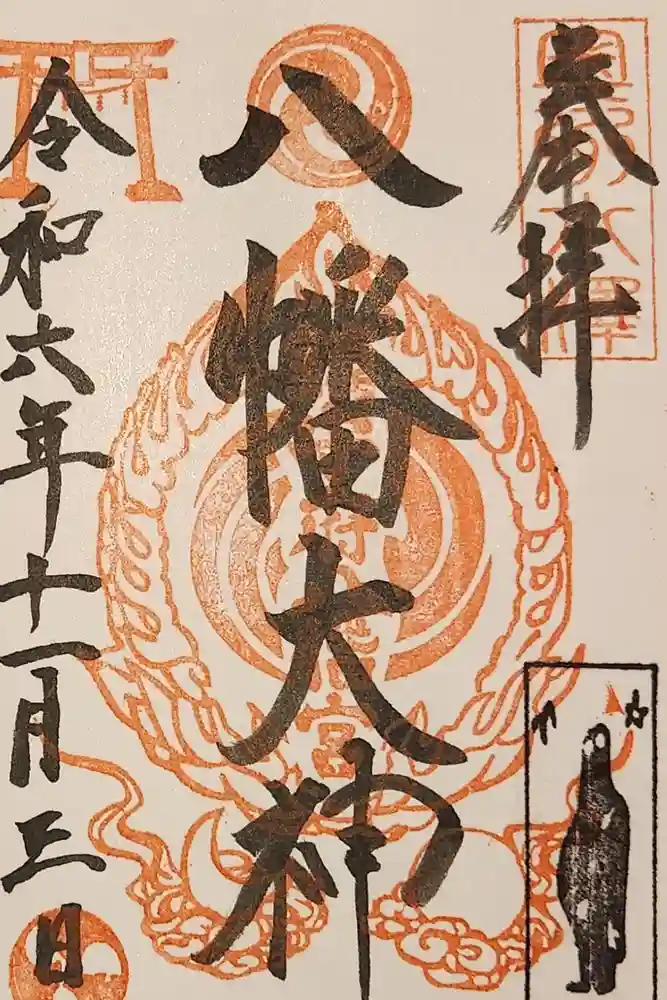 奉拝
八幡大神
令和六年十一月三日